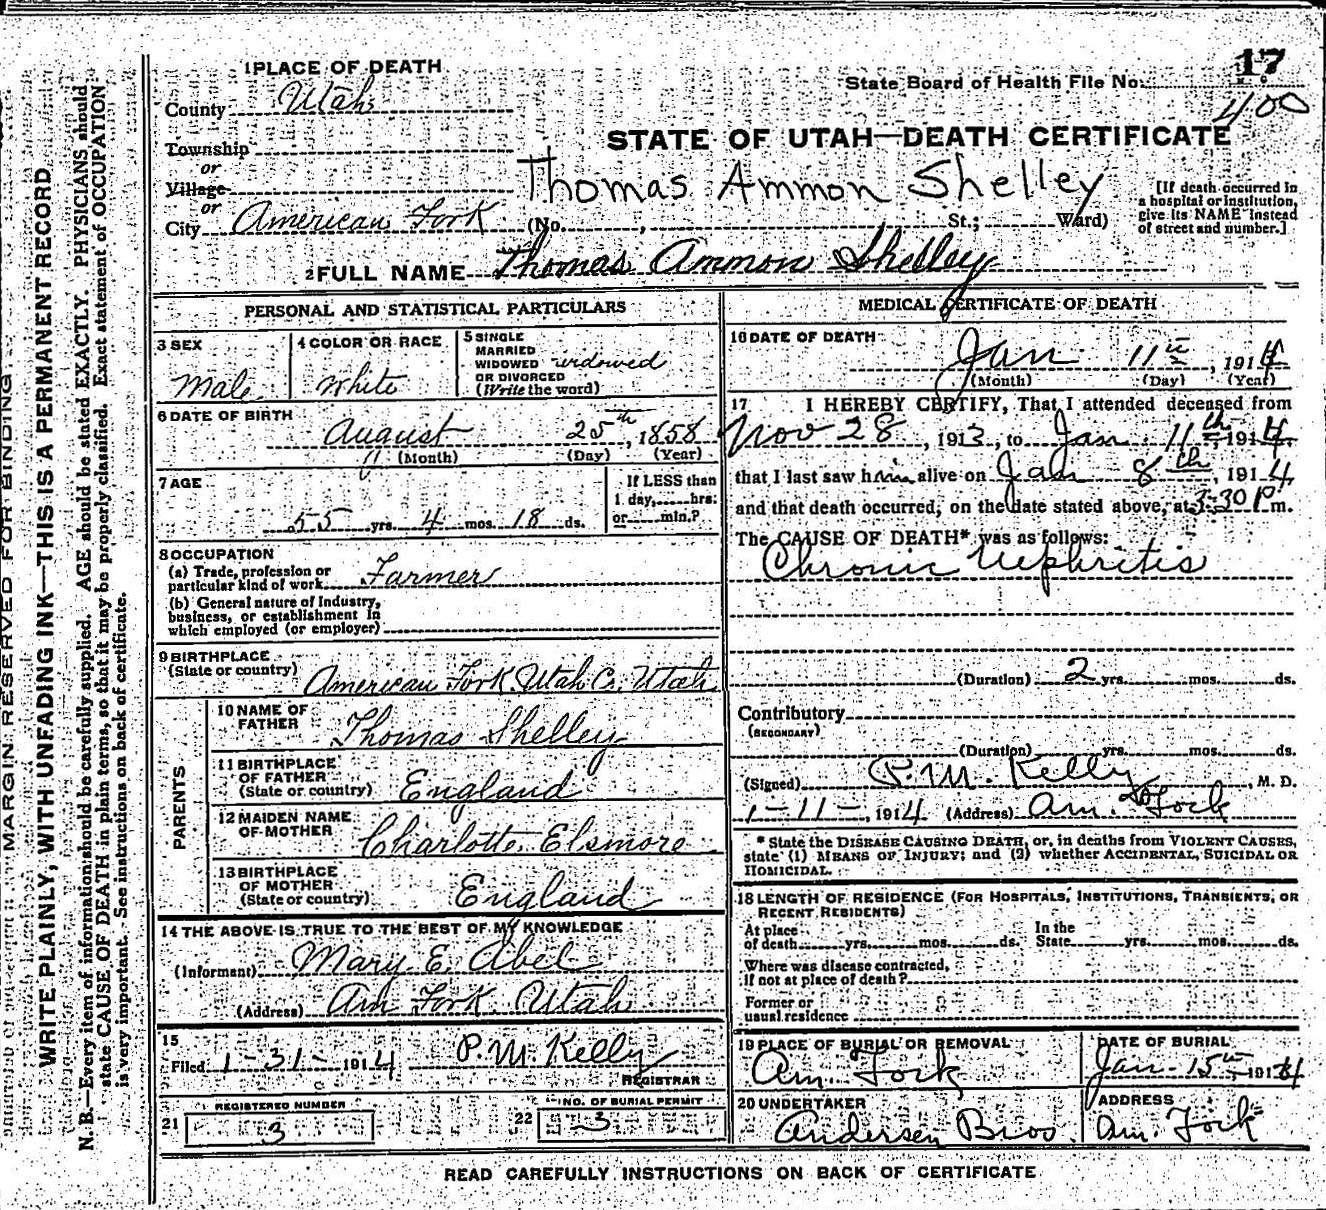 MARGIN RESERVED FOR BINDING
WRITE PLAINLY, WITH UNFADING INK—THIS IS A PERMANENT RECORD
N. B.—Every item of information should be carefully supplied. AGE should be stated EXACTLY. PHYSICIANS should
state CAUSE OF DEATH in plain terms, so that it may be properly classified. Exact statement of OCCUPATION
is very important. See instructions on back of certificate.
1 PLACE OF DEATH
County Utah
Township
or
Village
or
City American Fork (No. , St.; Ward)
State Board of Health File No. 17
400
STATE OF UTAH—DEATH CERTIFICATE
Thomas Ammon Shelley
[If death occurred in
a hospital or institution,
give its NAME instead
of street and number.]
2 FULL NAME Thomas Ammon Shelley
PERSONAL AND STATISTICAL PARTICULARS
3 SEX
Male
4 COLOR OR RACE
White
5 SINGLE
MARRIED
WIDOWED
OR DIVORCED
(Write the word)
widowed
6 DATE OF BIRTH
August 25th, 1858
(Month) (Day) (Year)
7 AGE
55 yrs. 4 mos. 18 ds.
If LESS than
1 day,......hrs.
or......min.?
8 OCCUPATION
(a) Trade, profession or
particular kind of work Farmer
(b) General nature of Industry,
business, or establishment in
which employed (or employer)
9 BIRTHPLACE
(State or country)
American Fork Utah Co. Utah
PARENTS
10 NAME OF
FATHER
Thomas Shelley
11 BIRTHPLACE
OF FATHER
(State or country) England
12 MAIDEN NAME
OF MOTHER
Charlotte Elsmore
13 BIRTHPLACE
OF MOTHER
(State or country) England
14 THE ABOVE IS TRUE TO THE BEST OF MY KNOWLEDGE
(Informant) Mary E. Abel
(Address) Am Fork. Utah
15
Filed 1-31-1914 P. M. Kelly
REGISTRAR
REGISTERED NUMBER
21 3
NO. OF BURIAL PERMIT
22 3
MEDICAL CERTIFICATE OF DEATH
16 DATE OF DEATH
Jan 11th, 1914
(Month) (Day) (Year)
17 I HEREBY CERTIFY, That I attended deceased from
Nov 28, 1913, to Jan 11th, 1914
that I last saw him alive on Jan 8th, 1914
and that death occurred, on the date stated above, at 3:30 P m.
The CAUSE OF DEATH* was as follows:
Chronic Nephritis
(Duration) 2 yrs. mos. ds.
Contributory
(SECONDARY)
(Duration) yrs. mos. ds.
(Signed) P. M. Kelly, M. D.
1-11-, 1914 (Address) Am. Fork
* State the DISEASE CAUSING DEATH, or, in deaths from VIOLENT CAUSES,
state (1) MEANS OF INJURY; and (2) whether ACCIDENTAL, SUICIDAL OR
HOMICIDAL.
18 LENGTH OF RESIDENCE (FOR HOSPITALS, INSTITUTIONS, TRANSIENTS, OR
RECENT RESIDENTS)
At place
of death yrs. mos. ds.
In the
State yrs. mos. ds.
Where was disease contracted,
if not at place of death?
Former or
usual residence
19 PLACE OF BURIAL OR REMOVAL
Am. Fork
DATE OF BURIAL
Jan. 15th, 1914
20 UNDERTAKER
Andersen Bros.
ADDRESS
Am. Fork
READ CAREFULLY INSTRUCTIONS ON BACK OF CERTIFICATE